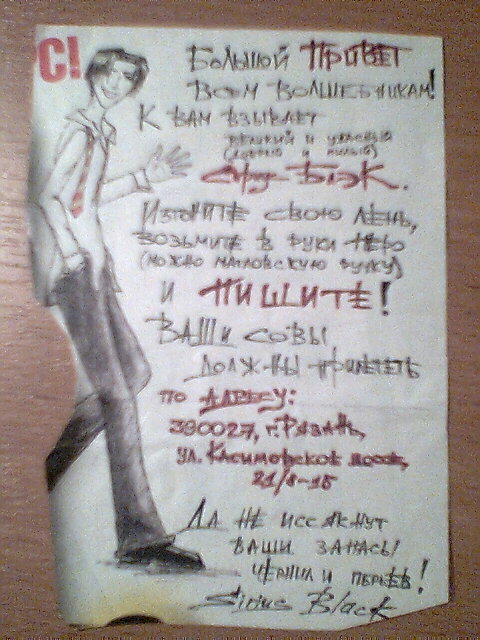 С!
Большой ПРИВЕТ
всем волшебникам!
К вам взывает
великий и ужасный
(добрый и милый)
Сириус Блэк.
Изгоните свою лень,
возьмите в руки перо
(можно магловскую ручку)
и ПИШИТЕ!
Ваши совы
должны прилететь
по адресу:
390027, г. Рязань,
ул. Касимовское шоссе,
21/1-15
Да не иссякнут
ваши запасы
чернил и перьев!
Sirius Black